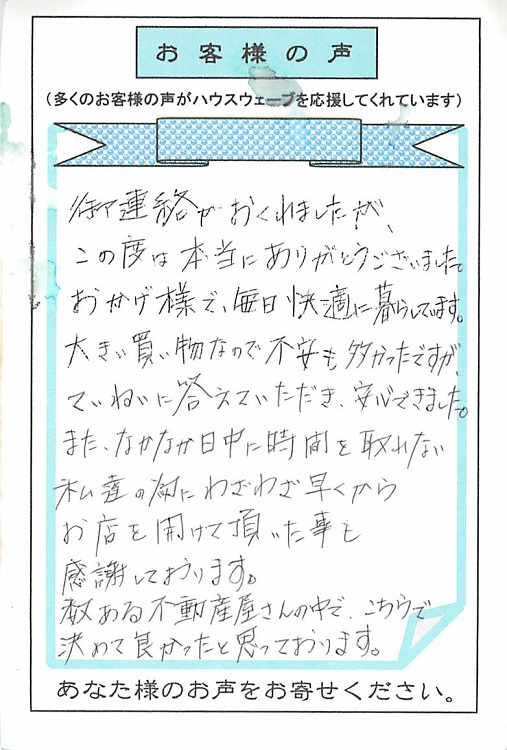 お客様の声
(多くのお客様の声がハウスウェーブを応援してくれています)
御連絡がおくれましたが、
この度は本当にありがとうございました。
おかげ様で、毎日快適に暮らしています。
大きい買い物なので不安も多かったですが、
ていねいに答えていただき、安心できました。
また、なかなか日中に時間を取れない
私達の為にわざわざ早くから
お店を開けて頂いた事も
感謝しております。
数ある不動産屋さんの中で、こちらで
決めて良かったと思っております。
あなた様のお声をお寄せください。